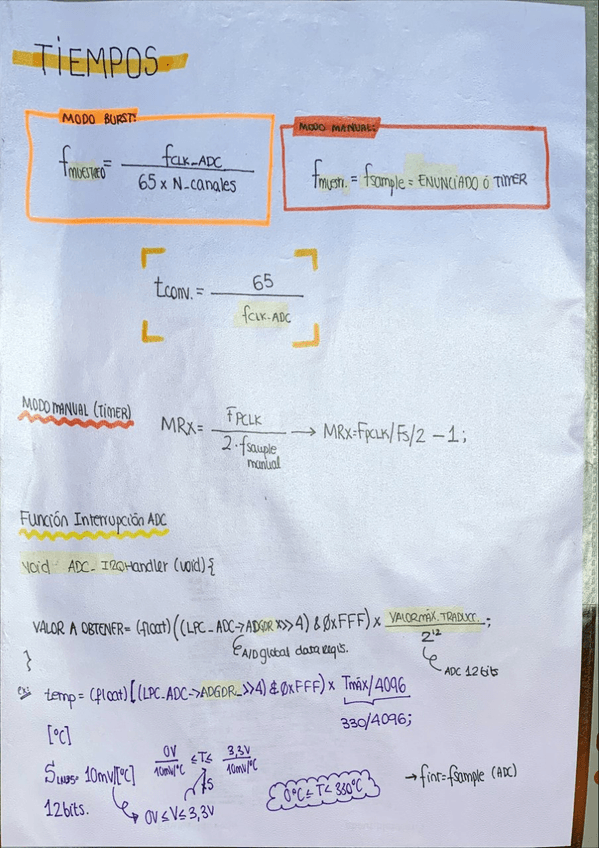 TIEMPOS.
MODO BURST:
fMUESTREO = fCLK_ADC / 65 x N_canales
MODO MANUAL:
fmuestr. = fsample = ENUNCIADO Ó TIMER
tconv. = 65 / fCLK_ADC
MODO MANUAL (TIMER)
MRx = FPCLK / 2·fsample manual → MRx=FPCLK/FS/2 -1;
Función Interrupción ADC
void ADC_IRQHandler (void) {
VALOR A OBTENER = (float)((LPC_ADC→ADGDR >>4) & 0xFFF) x VALOR MÁX. TRADUCC. / 2^12;
A/D global data regis.
ADC 12 bits
}
Ej: temp = (float)[(LPC_ADC→ADGDR_>>4) & 0xFFF) x Tmáx/4096
330/4096;
[°C]
0V / 10mV/°C ≤T≤ 3,3V / 10mV/°C
SLM35= 10mV/[°C]
:S
0°C ≤ T ≤ 330°C
→ fint = fsample (ADC)
12bits.
0V ≤ V ≤ 3,3V